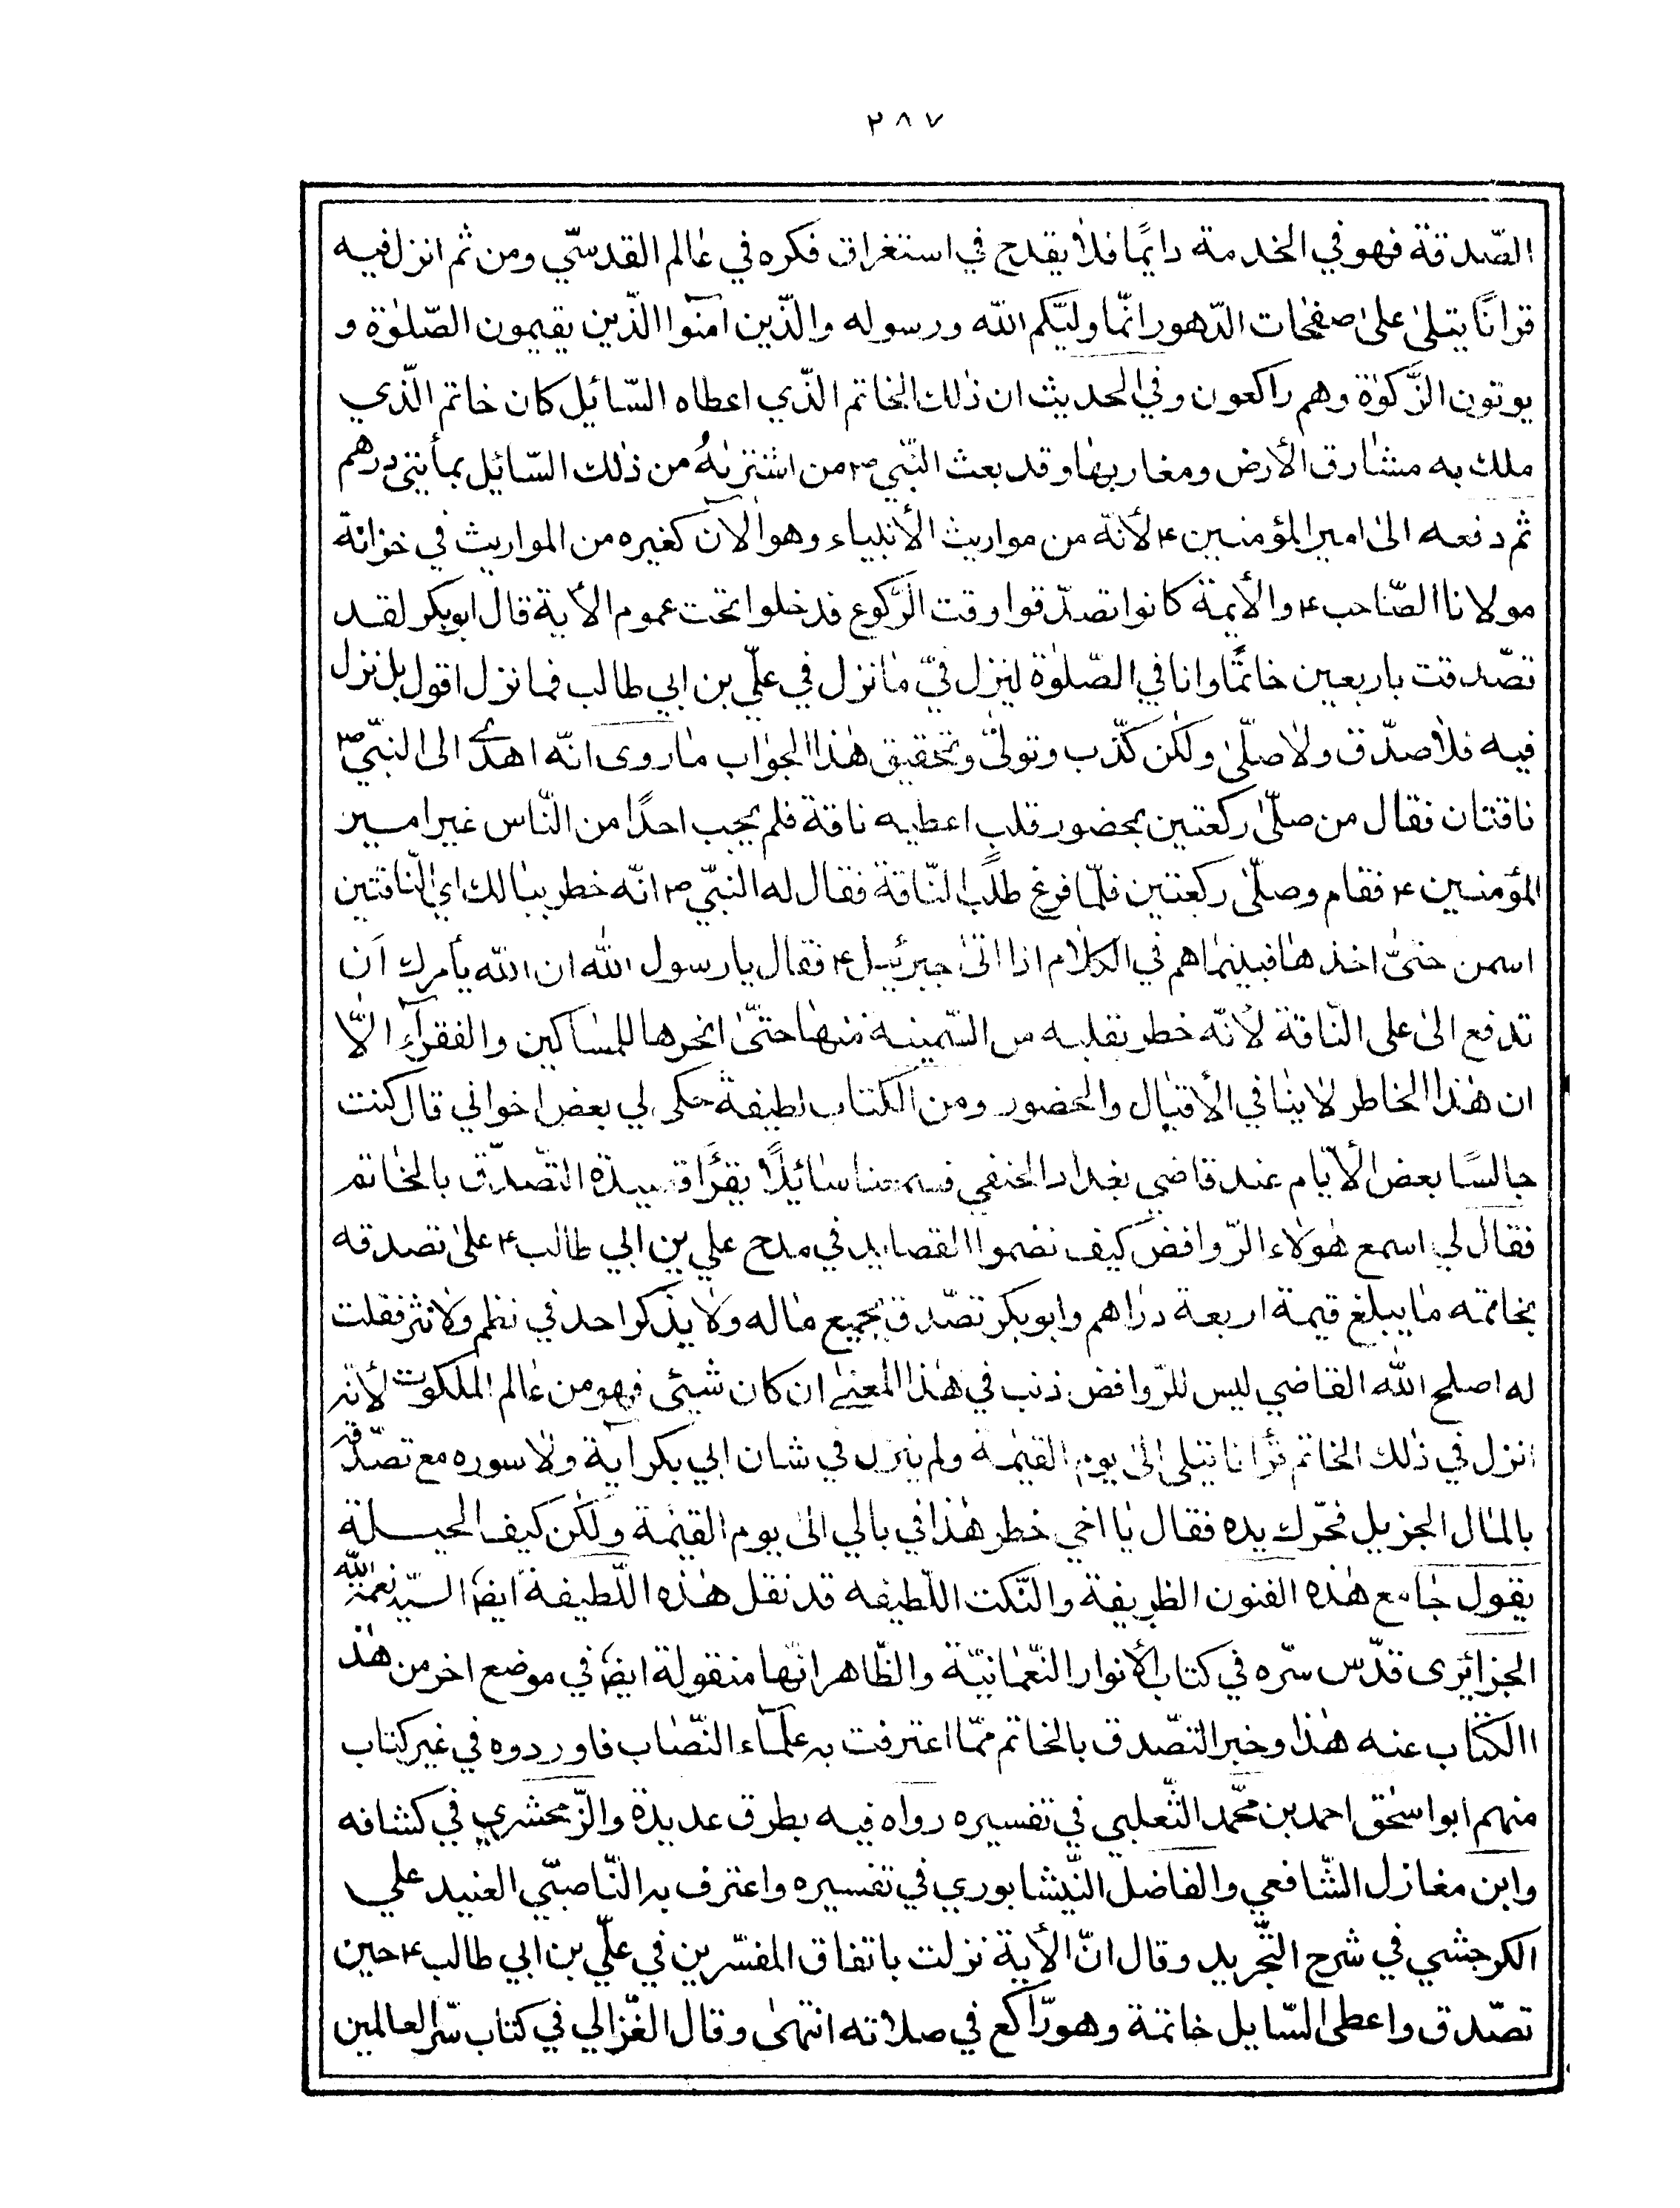 ٢٨٧
الصّدقة فهو في الخدمة دايمًا فلا يقدح في استغراق فكره في عالم القدسّي ومن ثم انزل فيه
قرانًا يتلى على صفحات الدّهور انّما وليّكم الله ورسوله والّذين آمنوا الّذين يقيمون الصّلوٰة و
يوتون الزّكوٰة وهم راكعون وفي الحديث ان ذلك الخاتم الّذي اعطاه السّائيل كان خاتم الّذي
ملك به مشارق الأرض ومغاربها وقد بعث النّبي ص من اشتريٰهُ من ذلك السّائيل بمأيتى درهم
ثم دفعه الى امير المؤمنين ع لأنّه من مواريث الأنبياء وهو الآن كغيره من المواريث في خزانة
مولانا الصّاحب ع والأيمة كانوا تصدّقوا وقت الرّكوع فدخلوا تحت عموم الأية قال ابوبكر لقد
تصّدقت باربعين خاتمًا وانا في الصّلوٰة لينزل فيّ ما نزل في علّي بن ابي طالب فما نزل اقول بل نزل
فيه فلا صدّق ولا صلّى ولكن كذّب وتولّى وتحقيق هذا الجواب ما روى انّه اهدى الى النبّي ص
ناقتان فقال من صلّى ركعتين بحضور قلب اعطيه ناقة فلم يجب احدًا من النّاس غير امير
المؤمنين ع فقام وصلّى ركعتين فلمّا فرغ طلب النّاقة فقال له النبّي ص انّه خطر ببالك اي النّاقتين
اسمن حتّى اخذها فبينما هم في الكلام اذا اتى جبرئيل ع فقال يا رسول الله ان الله يأمرك ان
تدفع الى على النّاقة لأنّه خطر بقلبه من السّمينة منها حتّى انحرها للمساكين والفقرآء الّا
ان هذا الخاطر لا ينافي الأقبال والحضور ومن الكتاب لطيفة حكى لي بعض اخواني قال كنت
جالسًا بعض الأيّام عند قاضي بغداد الحنفي فسمعنا سائيلًا يقرأ قصيدة التّصدّق بالخاتم
فقال لي اسمع هؤلاء الرّوافض كيف نضموا القصايد في مدح علي بن ابي طالب ع على تصدقه
بخاتمه ما يبلغ قيمة اربعة دراهم وابوبكر تصّدق بجميع ماله ولا يذكر احد في نظم ولا نثر فقلت
له اصلح الله القاضي ليس للرّوافض ذنب في هذا المعنى ان كان شيئى فهو من عالم الملكوت لأنه
انزل في ذلك الخاتم قرأنا تتلى الى يوم القيمة ولم ينزل في شان ابي بكر آية ولا سوره مع تصدّقه
بالمال الجزيل فحّرك يده فقال يا اخي خطر هذا في بالي الى يوم القيمة ولكن كيف الحيلة
يقول جامع هذه الفنون الظريفة والنّكت اللّطيفه قد نقل هذه اللّطيفة ايضا السيّد نعمة الله
الجزائرى قدّس سّره في كتاب الأنوار النّعمانيّة والظّاهر انّها منقولة ايضا في موضع اخر من هذ
االكتاب عنه هذا وخبر التصّدق بالخاتم ممّا اعترفت به علمآء النّصّاب فاوردوه في غير كتاب
منهم ابو اسحق احمد بن محّمد الثّعلبي في تفسيره رواه فيه بطرق عديدة والزّمحشري في كشافه
وابن مغازل الشّافعي والفاضل النّيشابوري في تفسيره واعترف به النّاصبّي العنيد علي
الكرجشي في شرح التجّريد وقال انّ الأية نزلت باتفاق المفسّرين في علّي بن ابي طالب ع حين
تصّدق واعطى السّايل خاتمة وهو راكع في صلاته انتهى وقال الغّزالي في كتاب سّر العالمين